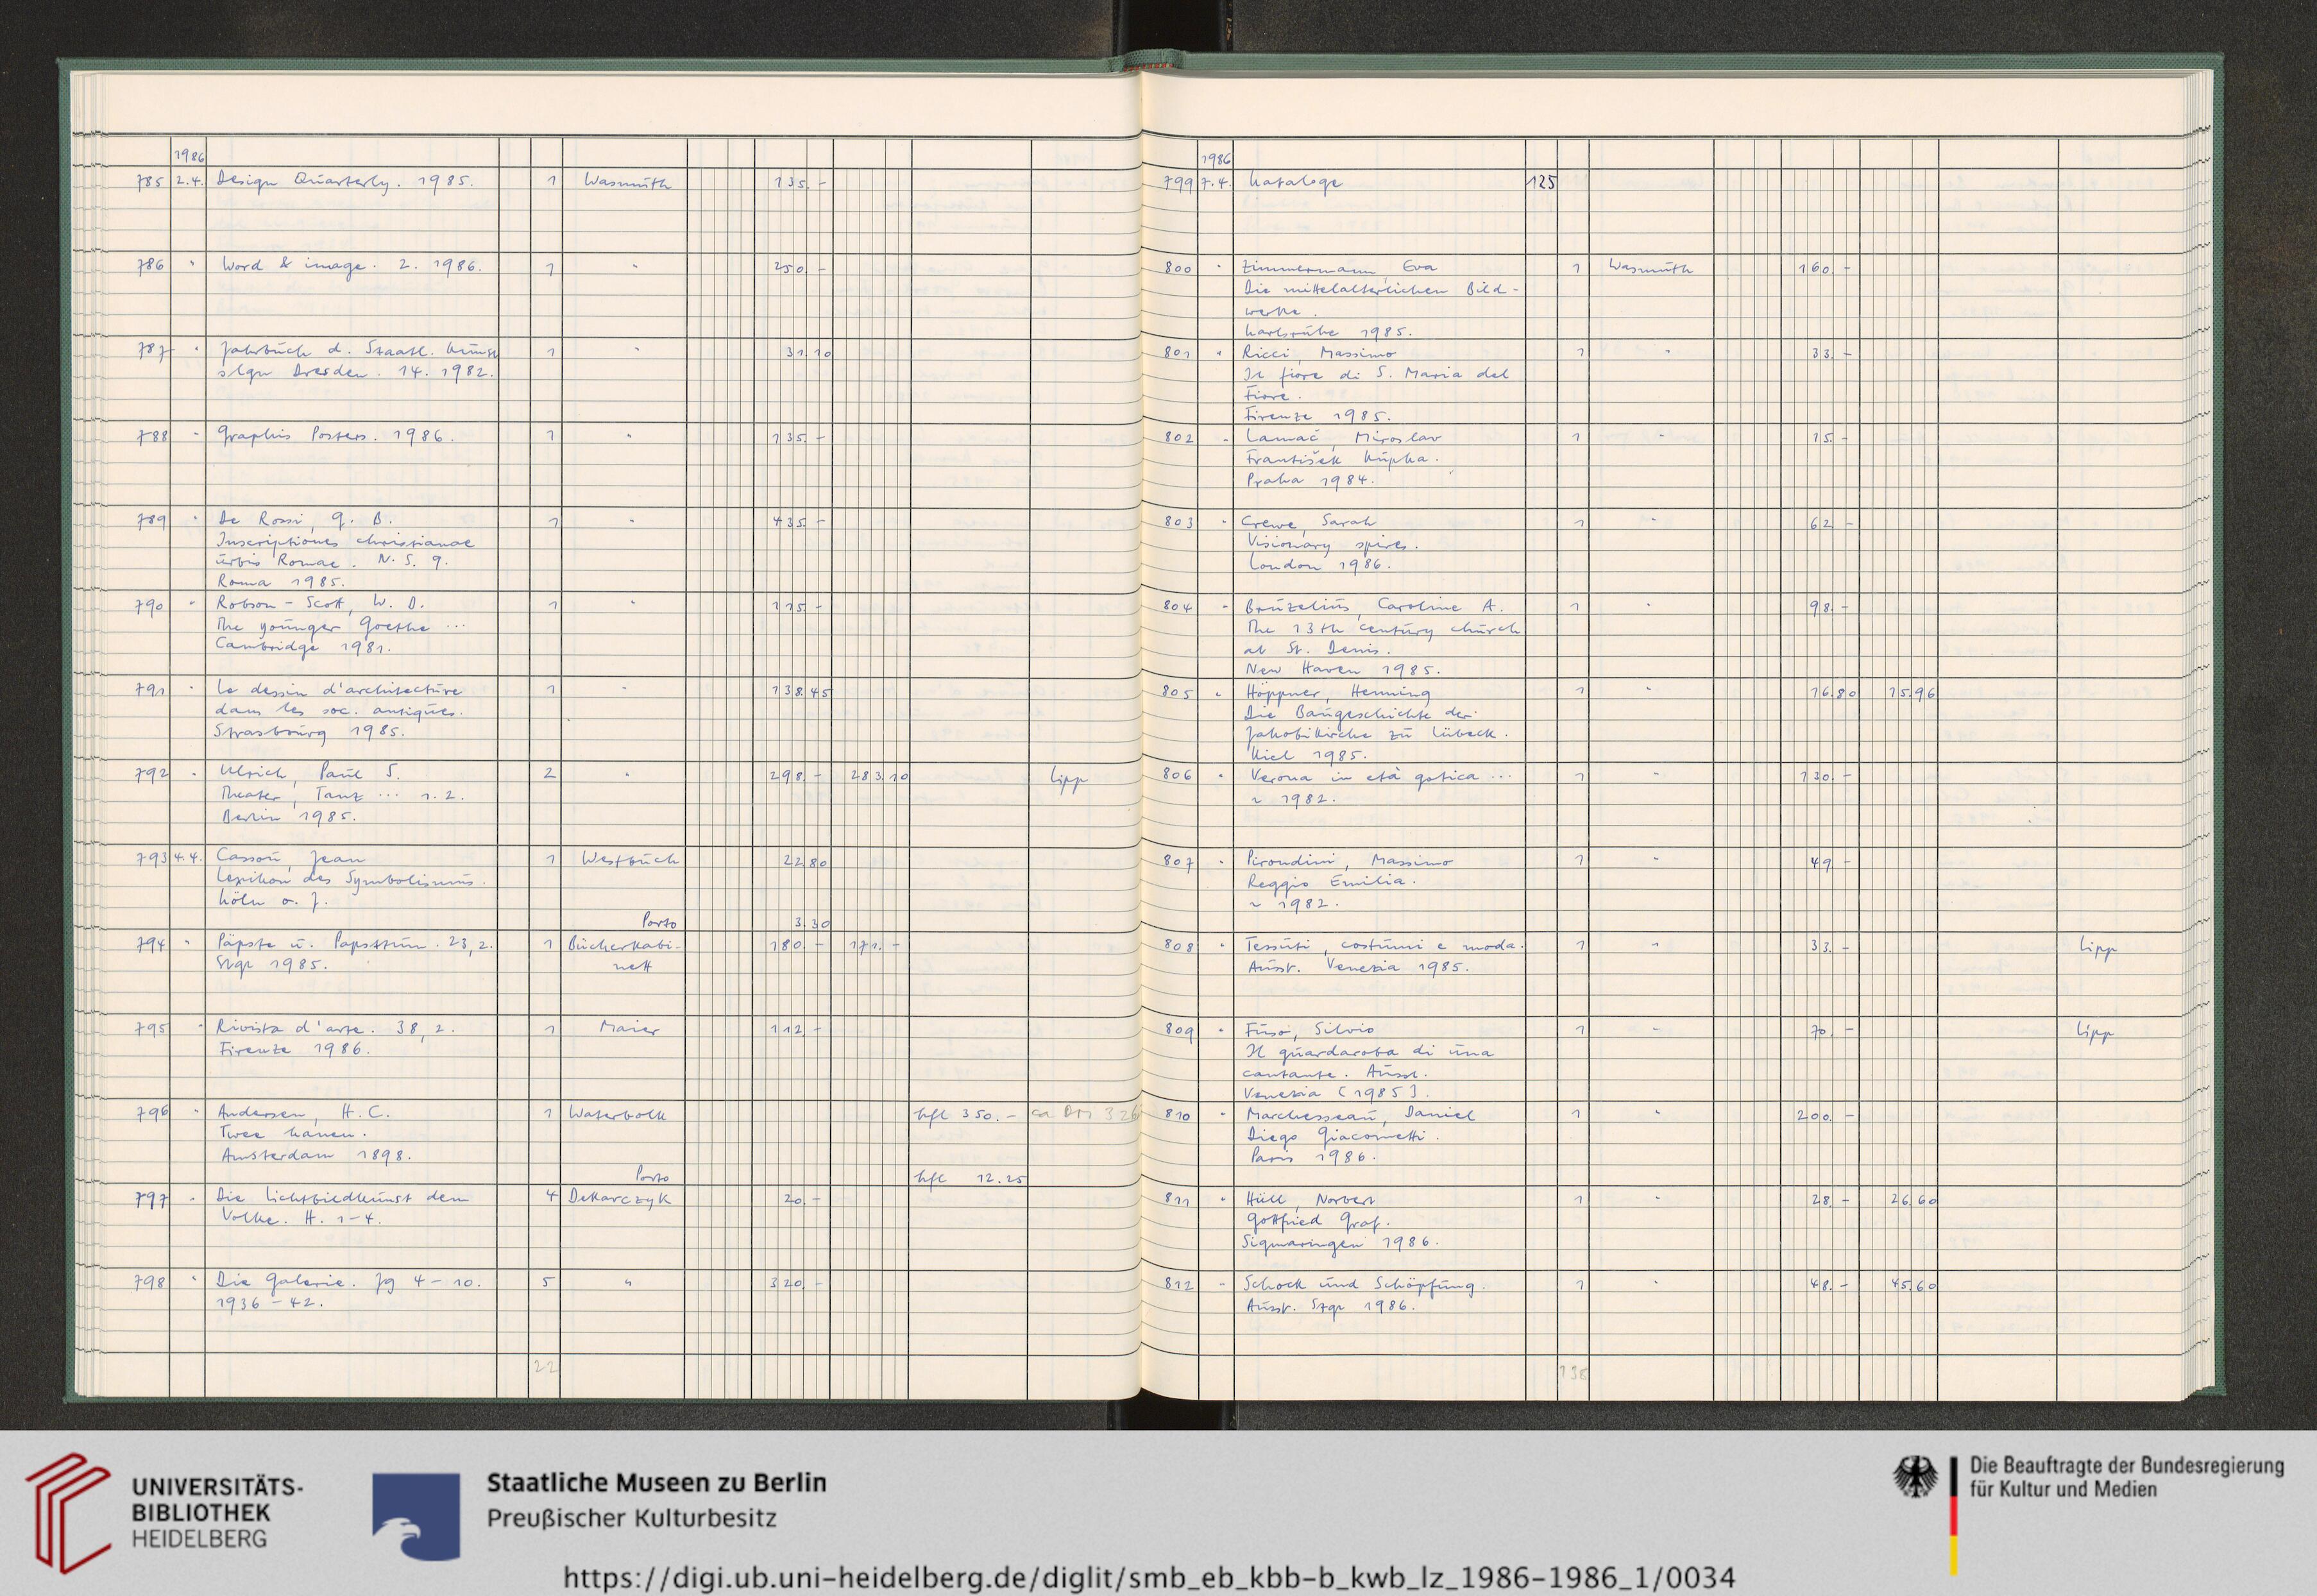 1986
785 2.4. Design Quarterly. 1985. 1 Wasmuth 135.-
786 " Word & image. 2. 1986. 1 " 250.-
787 " Jahrbuch d. Staatl. Kunst
slgn Dresden. 14. 1982. 1 " 31.10
788 " Graphis Posters. 1986. 1 " 135.-
789 " De Rossi, G. B. 1 " 435.-
Inscriptiones christianae
urbis Romae. N. S. 9.
Roma 1985.
790 " Robson-Scott, W. D. 1 " 115.-
The younger Goethe ...
Cambridge 1981.
791 " Le dessin d'architecture 1 " 138.45
dans les soc. antiques.
Strasbourg 1985.
792 " Ulrich, Paul S. 2 " 298.- 283.10 Lipp
Theater, Tanz ... 1.2.
Berlin 1985.
793 4.4. Cassou, Jean 1 Westbuch 22.80
Lexikon des Symbolismus.
Köln o. J.
Porto 3.30
794 " Päpste u. Papsttum. 23,2. 1 Bücherkabi- 180.- 171.-
Stgr 1985. nett
795 " Rivista d'arte. 38,2. 1 Maier 112.-
Firenze 1986.
796 " Andersen, H. C. 1 Waterbolk hfl 350.- ca DM 326
Twee hanen.
Amsterdam 1898.
Porto hfl 12.25
797 " Die Lichtbildkunst dem 4 Dekarczyk 20.-
Volke. H. 1-4.
798 " Die Galerie. Jg 4-10. 5 " 320.-
1936-42.
22
1986
799 7.4. Kataloge 125
800 " Zimmermann, Eva 1 Wasmuth 160.-
Die mittelalterlichen Bild-
werke.
Karlsruhe 1985.
801 " Ricci, Massimo 1 " 33.-
Il fiore di S. Maria del
Fiore.
Firenze 1985.
802 " Lamač, Miroslav 1 " 15.-
František Kupka.
Praha 1984.
803 " Crewe, Sarah 1 " 62.-
Visionary spires.
London 1986.
804 " Bruzelius, Caroline A. 1 " 98.-
The 13th century church
at St. Denis.
New Haven 1985.
805 " Höppner, Henning 1 " 16.80 15.96
Die Baugeschichte der
Jakobikirche zu Lübeck.
Kiel 1985.
806 " Verona in età gotica ... 1 " 130.-
~ 1982.
807 " Pirondini, Massimo 1 " 49.-
Reggio Emilia.
~ 1982.
808 " Tessuti, costumi e moda. 1 " 33.- Lipp
Ausst. Venezia 1985.
809 " Fuso, Silvio 1 " 70.- Lipp
Il guardaroba di una
cantante. Ausst.
Venezia [1985].
810 " Marchesseau, Daniel 1 " 200.-
Diego Giacometti.
Paris 1986.
811 " Hüll, Norbert 1 " 28.- 26.60
Gottfried Graf.
Sigmaringen 1986.
812 " Schock und Schöpfung. 1 " 48.- 45.60
Ausst. Stgr 1986.
138
UNIVERSITÄTS-
BIBLIOTHEK
HEIDELBERG
Staatliche Museen zu Berlin
Preußischer Kulturbesitz
Die Beauftragte der Bundesregierung
für Kultur und Medien
https://digi.ub.uni-heidelberg.de/diglit/smb_eb_kbb-b_kwb_lz_1986-1986_1/0034